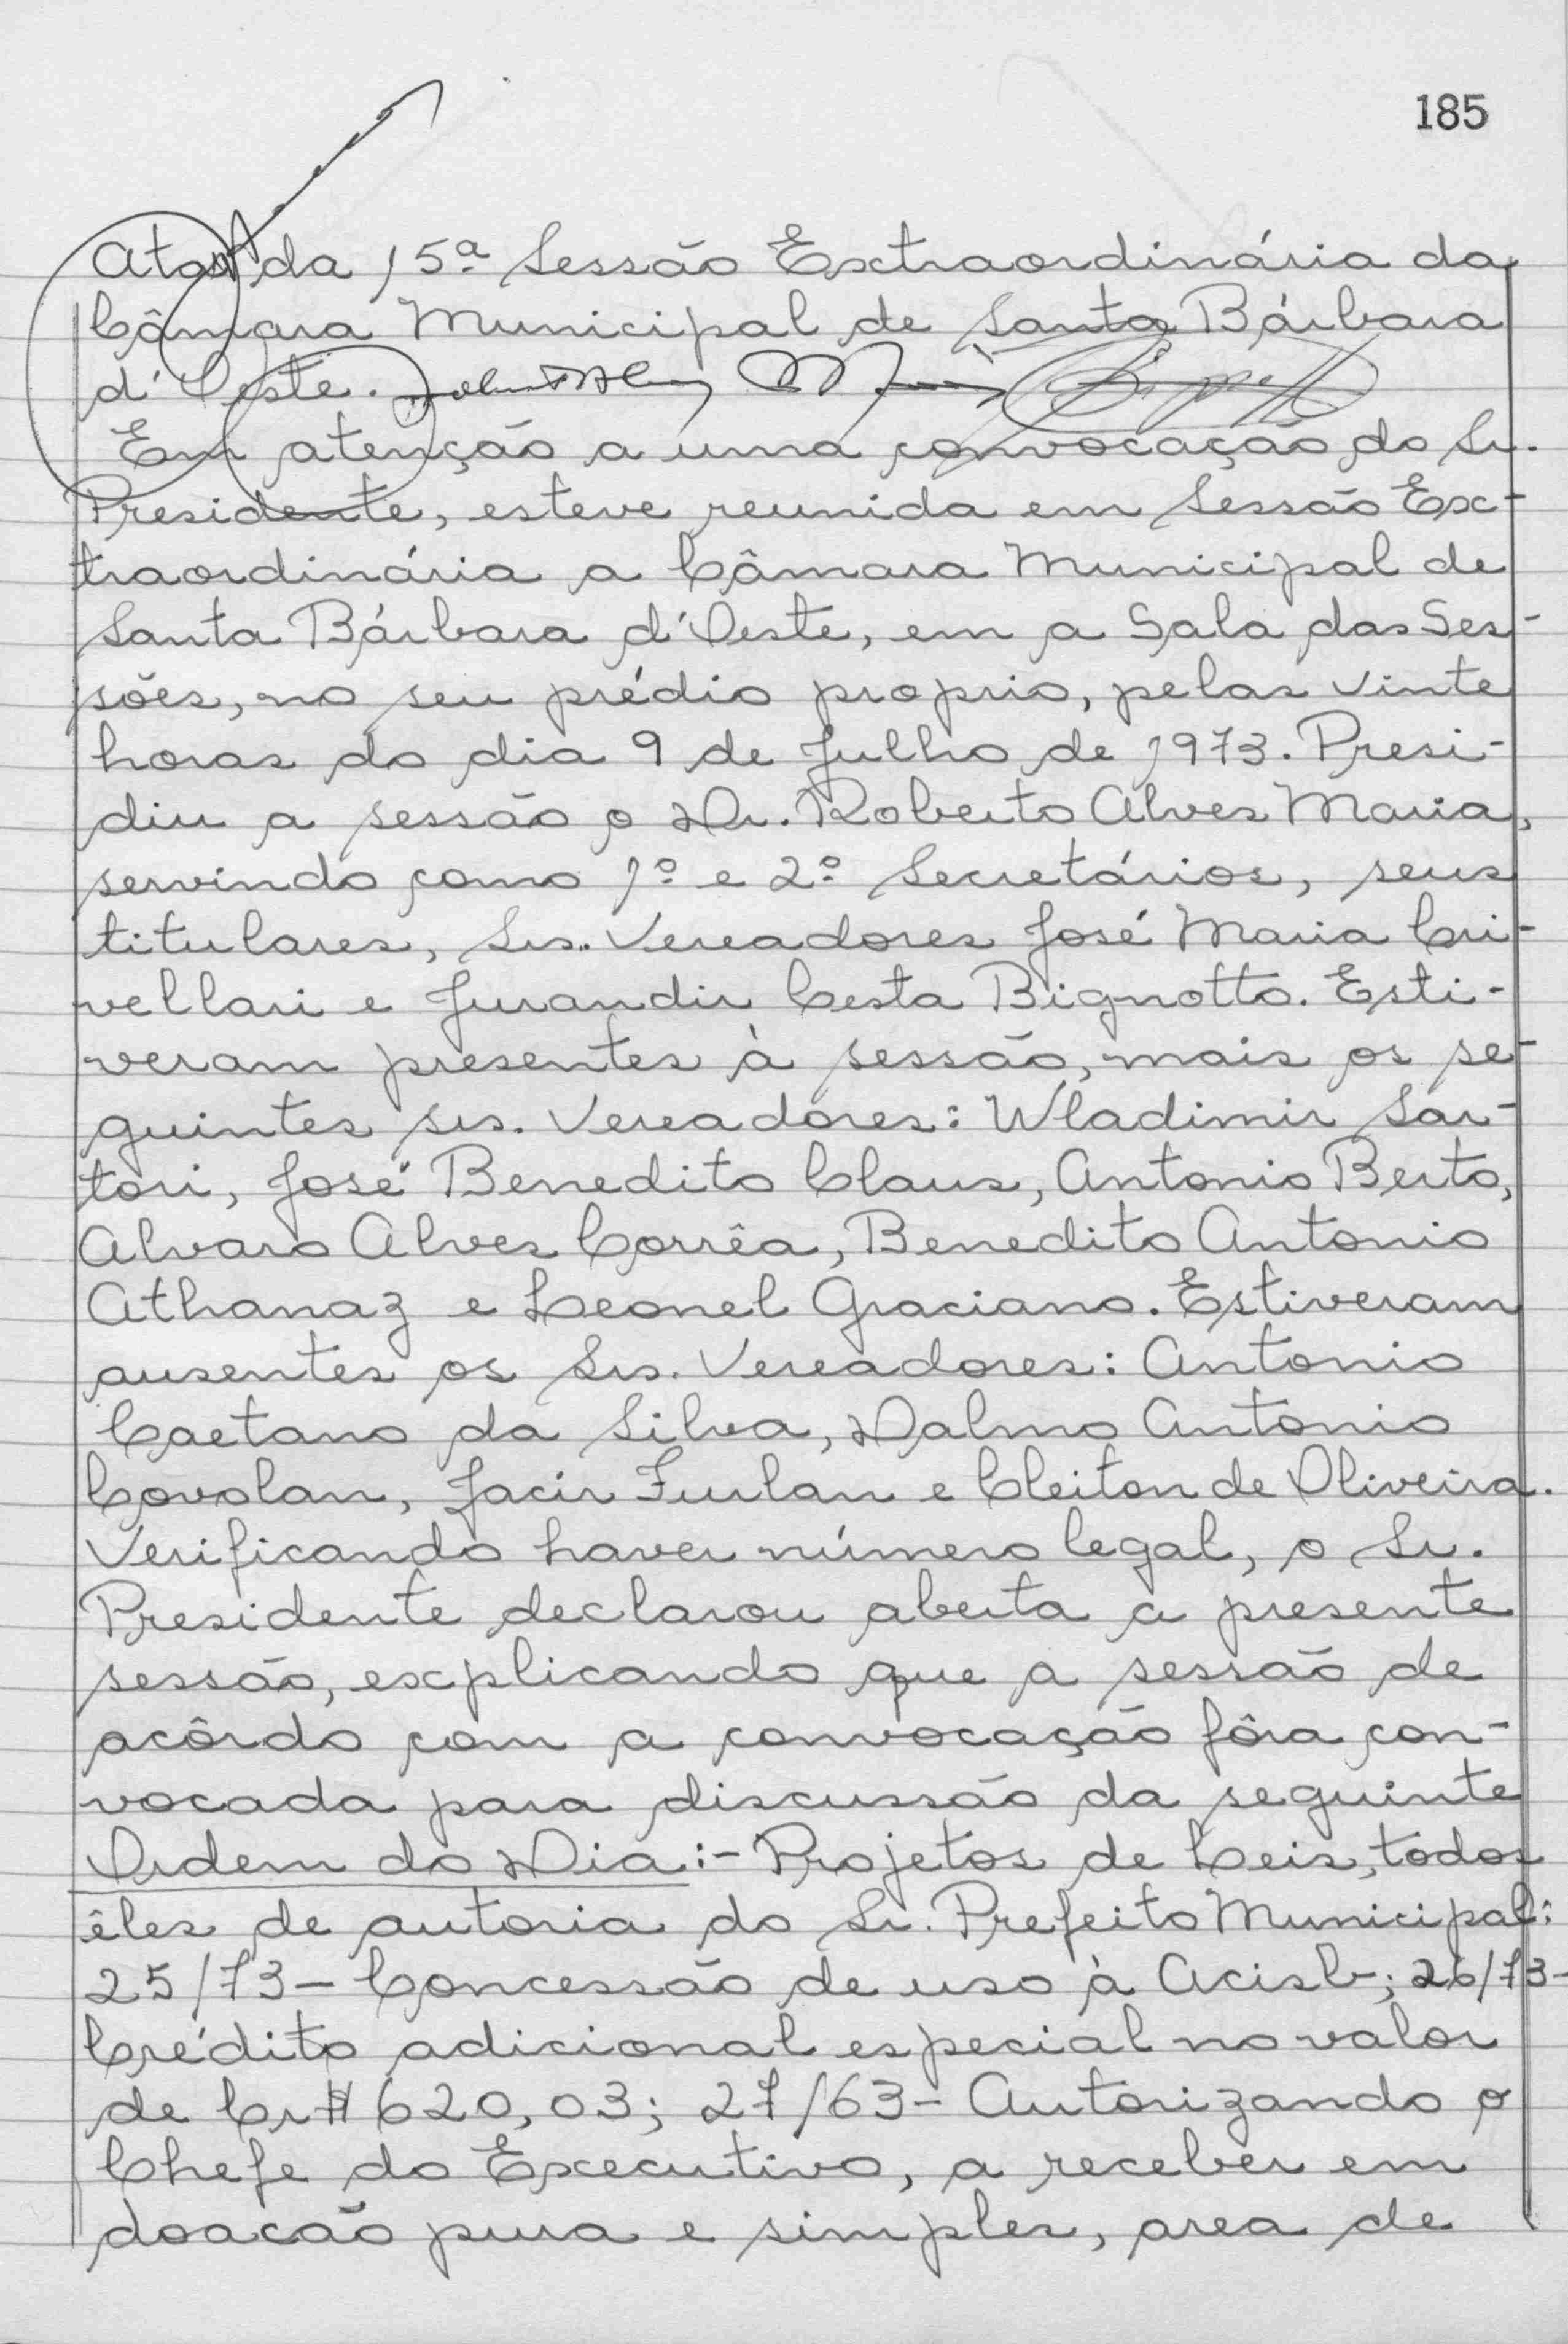 185
Ata da 15ª Sessão Extraordinária da
Câmara Municipal de Santa Bárbara
d'Oeste.
Em atenção a uma convocação do Sr.
Presidente, esteve reunida em Sessão Ex-
traordinária a Câmara Municipal de
Santa Bárbara d'Oeste, em a Sala das Ses-
sões, no seu prédio proprio, pelas vinte
horas do dia 9 de Julho de 1973. Presi-
diu a sessão o Dr. Roberto Alves Maria,
servindo como 1º e 2º Secretários, seus
titulares, Srs. Vereadores José Maria Cri-
vellari e Jurandir Cesta Bignotto. Esti-
veram presentes à sessão, mais os se-
guintes srs. Vereadores: Wladimir Sar-
tori, José Benedito Claus, Antonio Berto,
Alvaro Alves Corrêa, Benedito Antonio
Athanaz e Leonel Graciano. Estiveram
ausentes os Srs. Vereadores: Antonio
Caetano da Silva, Dalmo Antonio
Covolan, Jacir Furlan e Cleiton de Oliveira.
Verificando haver número legal, o Sr.
Presidente declarou aberta a presente
sessão, explicando que a sessão de
acôrdo com a convocação fôra con-
vocada para discussão da seguinte
Ordem do Dia:- Projetos de Leis, todos
êles de autoria do Sr. Prefeito Municipal:
25/73 - Concessão de uso à Acisb; 26/73-
Crédito adicional especial no valor
de Cr$ 620,03; 27/63 - Autorizando o
Chefe do Executivo, a receber em
doacão pura e simples, area de